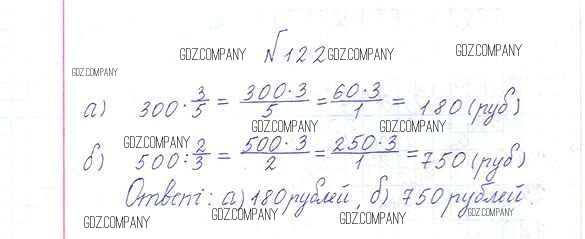 №122
GDZ.COMPANY GDZ.COMPANY GDZ.COMPANY
GDZ.COMPANY
а) 300 · 3/5 = 300·3/5 = 60·3/1 = 180 (руб)
GDZ.COMPANY GDZ.COMPANY
GDZ.COMPANY
б) 500 : 2/3 = 500·3/2 = 250·3/1 = 750 (руб)
Ответ: а) 180 рублей, б) 750 рублей.
GDZ.COMPANY GDZ.COMPANY GDZ.COMPANY GDZ.COMPANY